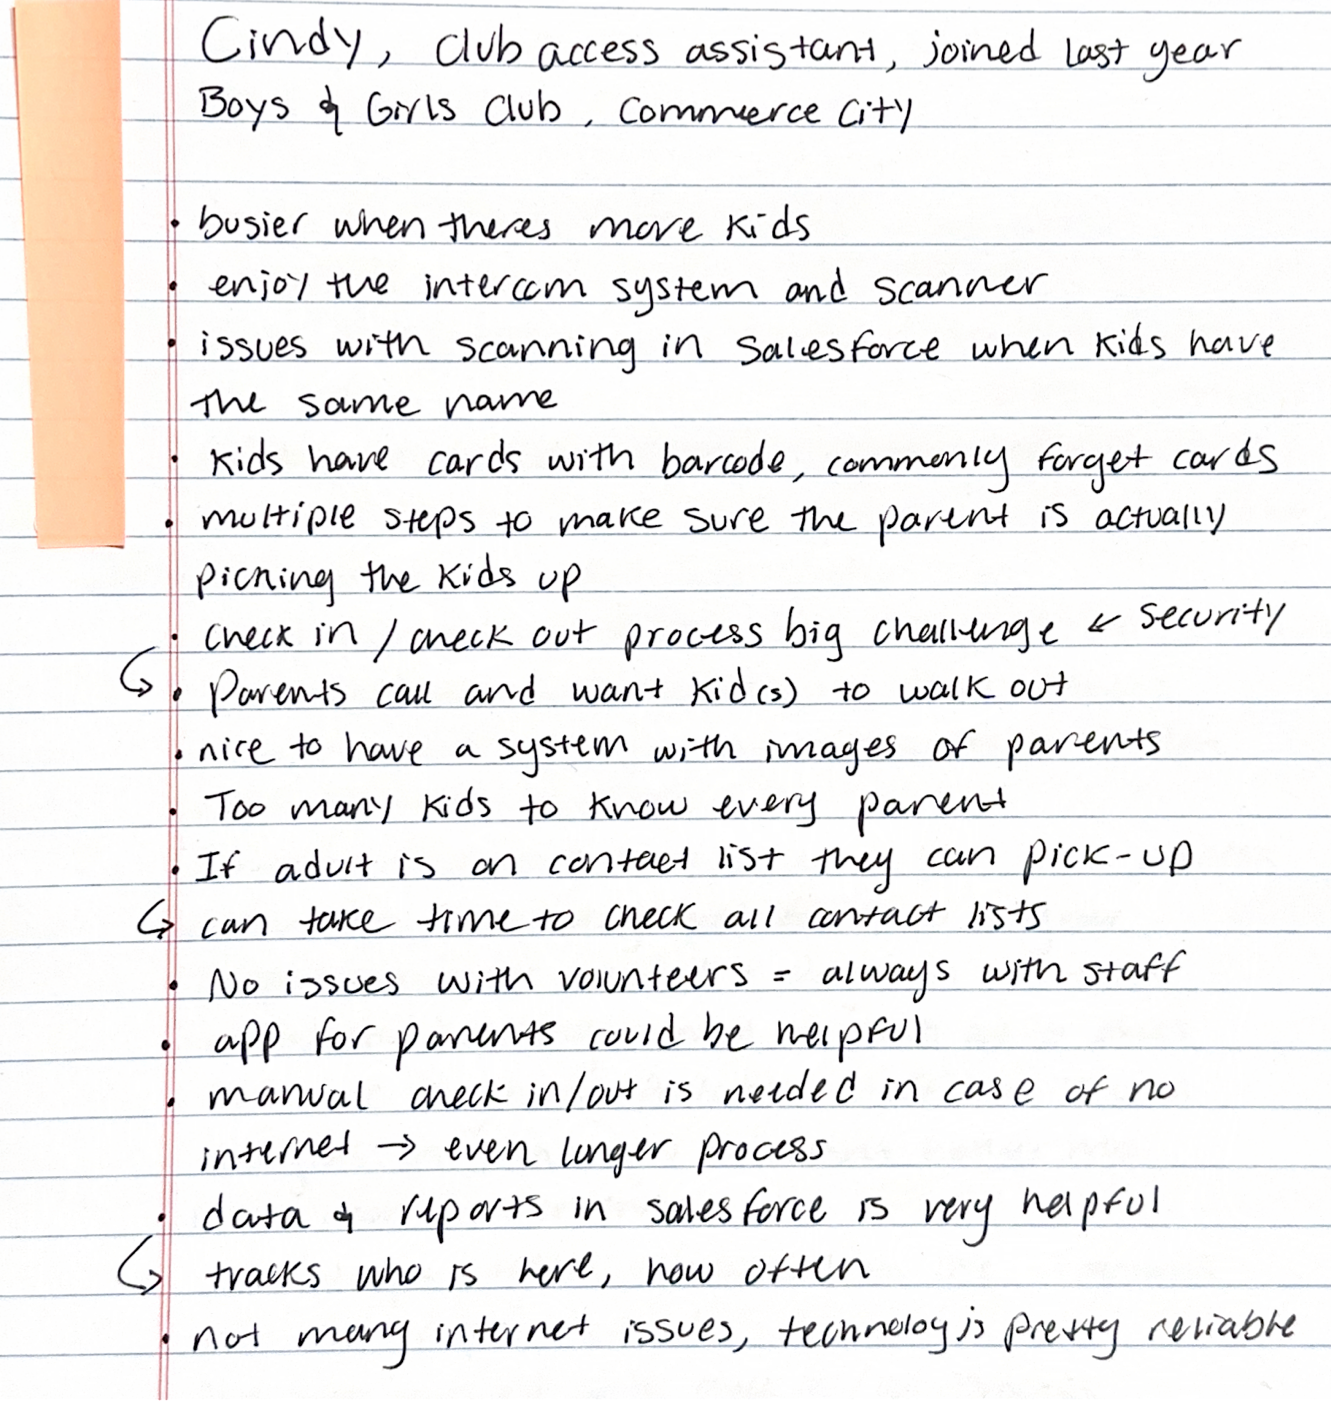 Cindy, Club access assistant, joined last year
Boys & Girls Club, Commerce City
• busier when theres more kids
• enjoy the intercom system and scanner
• issues with scanning in Salesforce when kids have
the same name
• kids have cards with barcode, commonly forget cards
• multiple steps to make sure the parent is actually
picking the kids up
• check in / check out process big challenge ← security
↳ • Parents call and want kid(s) to walk out
• nice to have a system with images of parents
• Too many kids to know every parent
• If adult is on contact list they can pick-up
↳ can take time to check all contact lists
• No issues with volunteers = always with staff
• app for parents could be helpful
• manual check in/out is needed in case of no
internet → even longer process
• data & reports in salesforce is very helpful
↳ tracks who is here, how often
• not many internet issues, technology is pretty reliable